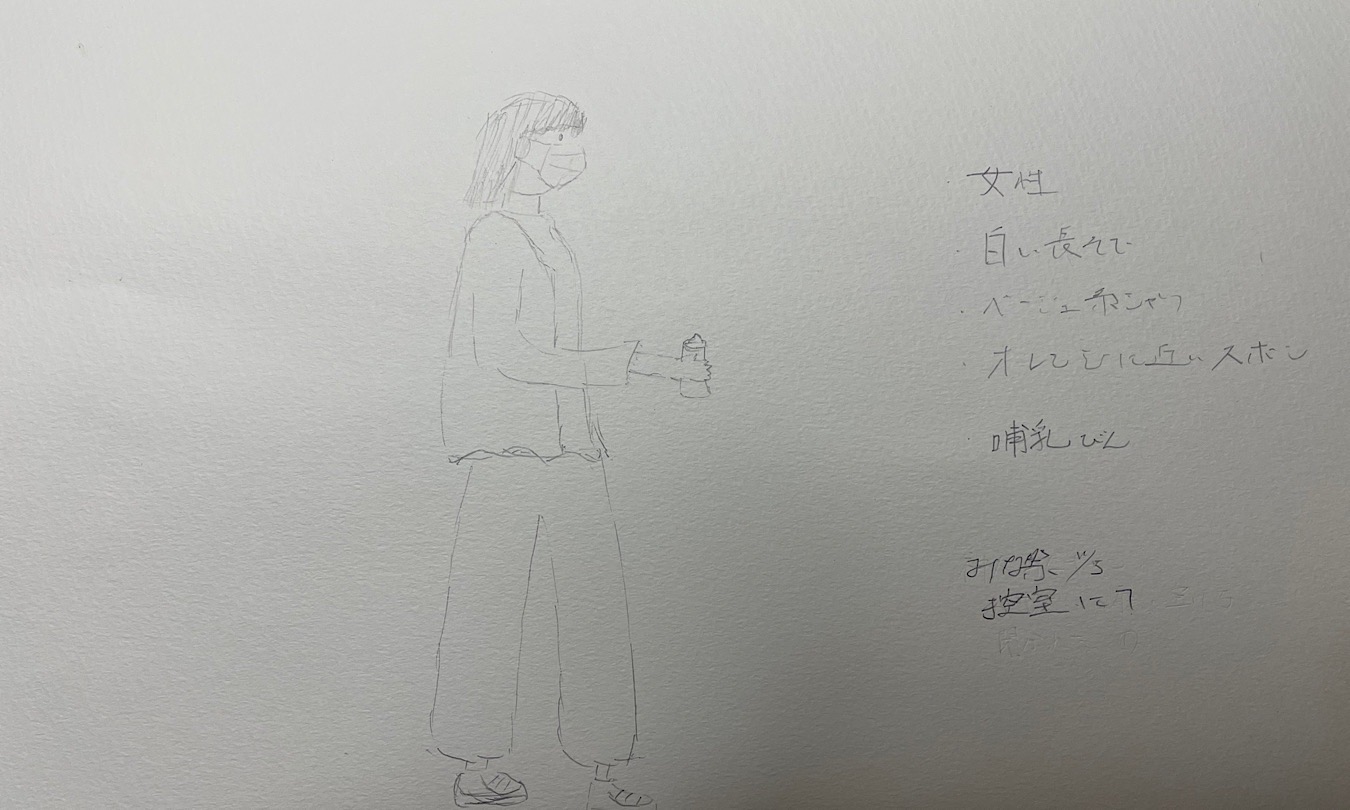 ・女性
・白い長そで
・ベージュ系シャツ
・オレンジに近いズボン
・哺乳びん
11/3
控室にて